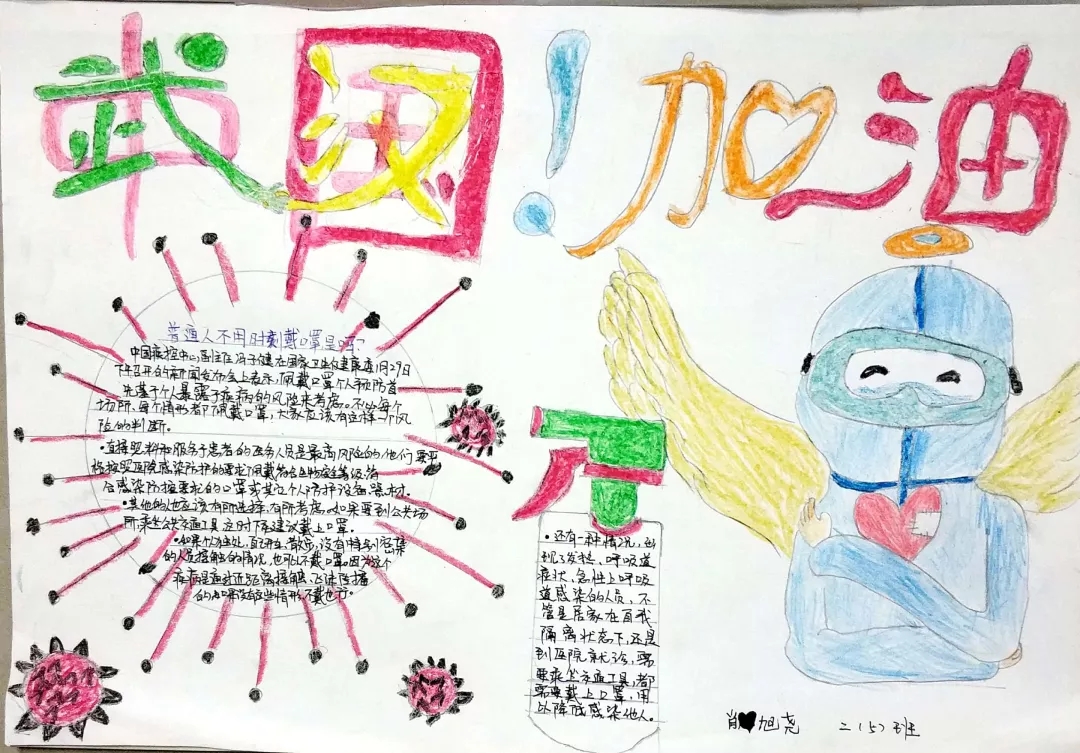 武汉!加油
普通人不用时刻戴口罩是吗?
中国疾控中心副主任冯子健在国家卫生健康委1月29日
下午召开的新闻发布会上表示,佩戴口罩个人预防首
先基于个人暴露于疾病的风险来考虑。不必每个
场所、每个情形都佩戴口罩,大家应该有这样一个风
险的判断。
·直接照料和服务于患者的医务人员是最高风险的,他们要严
格按照医院感染防护的要求,佩戴符合生物安全等级、符
合感染防控要求的口罩或其它个人防护设备器材。
·其他的也应该有所选择,有所考虑。如果要到公共场
所,乘坐公共交通工具,这时下是建议戴上口罩。
·如果个人独处,自己开车,散步,没有特别密集
的人员接触的情况,也可以不戴口罩。因为这个
疾病是通过近距离接触、飞沫传播
的,如果没有这些情形,不戴也行。
·还有一种情况,出
现了发热、呼吸道
症状,急性上呼吸
道感染的人员,不
管是居家在自我
隔离状态下,还是
到医院就诊,需
要乘公交通工具,都
需要戴上口罩,用
以降低感染他人。
肖旭尧 二(5)班